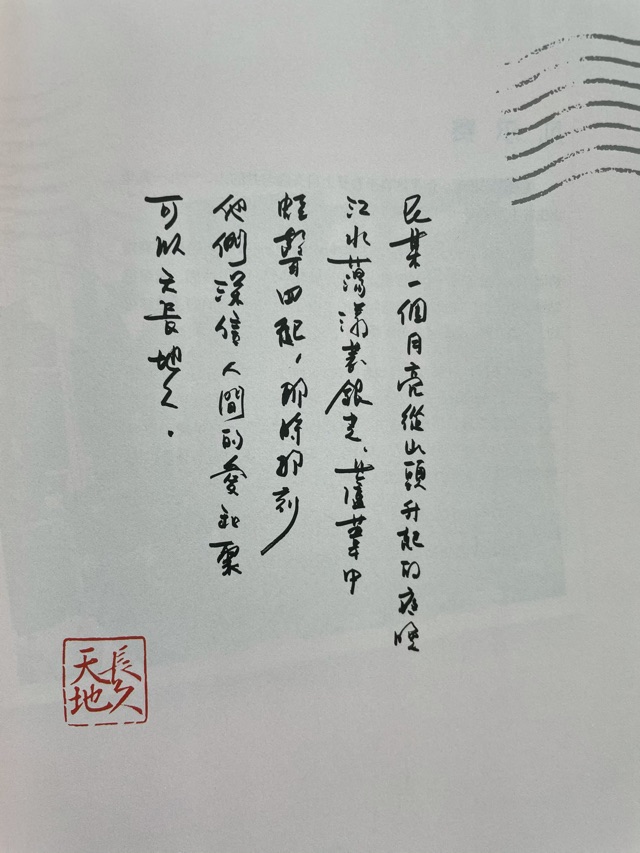 某一個月亮從山頭升起的夜晚
江水蕩漾著銀光，蘆葦中
蛙聲四起，那時那刻
他們深信人間的愛和聚
可以天長地久。
天長
地久